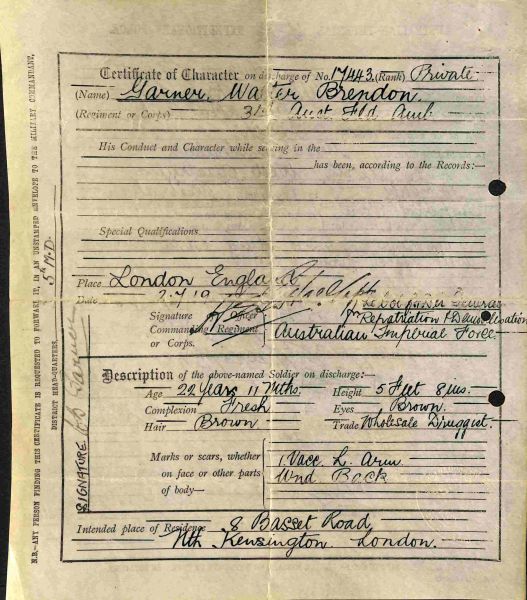 Certificate of Character on discharge of No. 17443 (Rank) Private
(Name) Garner. Walter Brendon.
(Regiment or Corps) 3rd Aust Fld Amb
His Conduct and Character while serving in the
has been, according to the Records:—
Special Qualifications
Place London England
Date
Signature of Officer
Commanding Regiment
or Corps.
for
Repatriation & Demobilisation
Australian Imperial Force
Description of the above-named Soldier on discharge:—
Age 22 Years 11 Mths. Height 5 Feet 8 ins.
Complexion Fresh Eyes Brown.
Hair Brown Trade Wholesale Druggist.
Marks or scars, whether
on face or other parts
of body—
1 Vacc L. Arm
Wnd Back
Intended place of Residence 8 Basset Road,
Nth. Kensington. London.
N.B.—ANY PERSON FINDING THIS CERTIFICATE IS REQUESTED TO FORWARD IT, IN AN UNSTAMPED ENVELOPE TO THE MILITARY COMMANDANT,
5th M.D.
DISTRICT HEAD-QUARTERS.
SIGNATURE